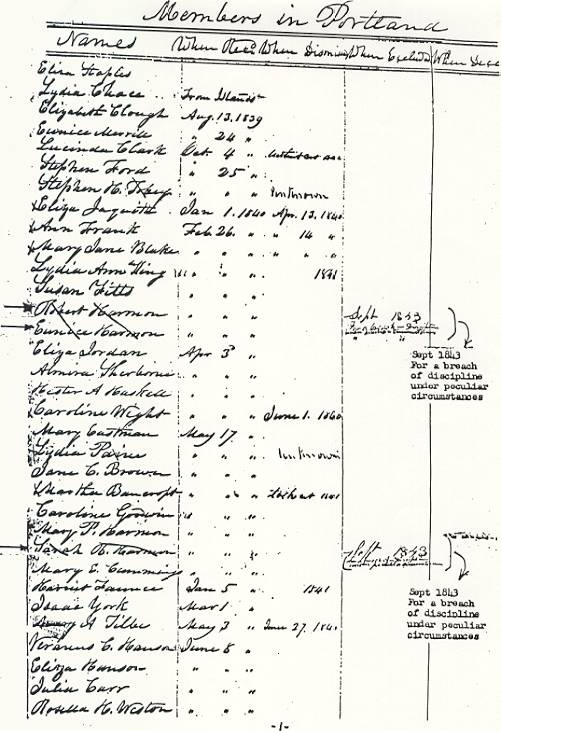 Members in Portland
Names When Rec'd When Dismiss When Exclud When Dece
Eliza Staples
Lydia Chace From Islands
Elizabeth Clough Aug. 13. 1839
Eunice Merrill " 24 "
Lucinda Clark Oct. 4 "
Stephen Ford " 25 "
Stephen H. " " " Unknown
Eliza Jaquith Jan 1. 1840 Apr. 13. 1840
Ann Frank Feb. 26. " " 14 "
Mary Jane Blake " " " " " "
Lydia Ann King " " " 1841
Susan Fitts " " "
Robert Harmon " " " Sept 1843
Eunice Harmon " " "
Eliza Jordan Apr 3 "
Sept 1843
For a breach
of discipline
under peculiar
circumstances
Almira Sherburne " " "
Hester A Haskell " " "
Caroline Wight " " " June 1. 1860
Mary Eastman May 17. "
Lydia Paine " " " Unknown
Jane C. Brown " " "
Martha Bancroft " " "
Caroline Goodwin " " "
Mary P. Harmon " " "
Sarah H. Harmon " " " Sept 1843
Mary E. Cummings " " "
Harriet Faunce Jan 5 " 1841
Sept 1843
For a breach
of discipline
under peculiar
circumstances
Isaac York Mar 1 "
A Tille May 3 " June 27. 184
C. Hanson June 8 "
Eliza Hanson " " "
Julia Carr " " "
Rosella H. Weston " " "
-1-